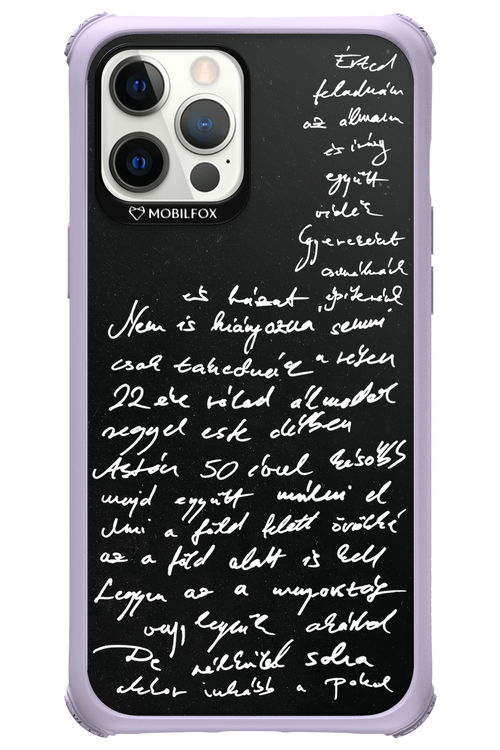 MOBILFOX
Érted
feladnám
az álmam
és irány
együtt
vidék
Gyerekeket
csinálnánk
és házat építenénk
Nem is hiányozna semmi
csak takednék a rétem
22 éve rólad álmodok
reggel este délben
Aztán 50 évvel később
majd együtt múlni el
Ami a föld felett örökké
az a föld alatt is kell
Legyen az a mennyország
vagy legyünk akárhol
De nélküled soha
akkor inkább a Pokol